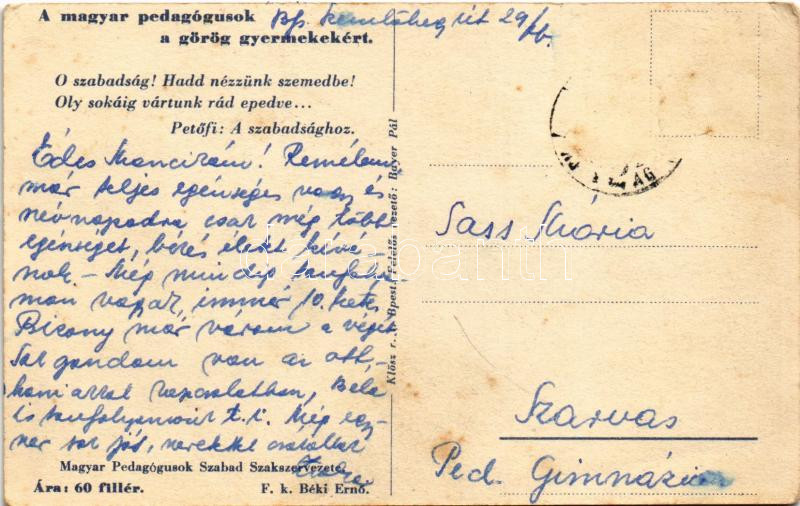 A magyar pedagógusok
a görög gyermekekért.
Bp. Szemlőhegy út 29/b.
O szabadság! Hadd nézzünk szemedbe!
Oly sokáig vártunk rád epedve...
Petőfi: A szabadsághoz.
Édes Mancikám! Remélem
már teljes egészséges vagy és
névnapodra, csak még több
egészséget, békés életet kívá-
nok – Még mindig tanfolya-
mon vagyok, immár 10. hete,
Bizony már várom a végét
Sok gondom van az ott-
honiakkal kapcsolatban, Béla
is tanfolyamon t. i. Még egy-
szer sok jót, szeretettel csókollak
Magyar Pedagógusok Szabad Szakszervezete.
Ára: 60 fillér.
F. k. Béki Ernő.
Klösz Bpest. Felelős vezető: Bayer Pál
Sass Mária
Szarvas
Ped. Gimnázium
darabanth